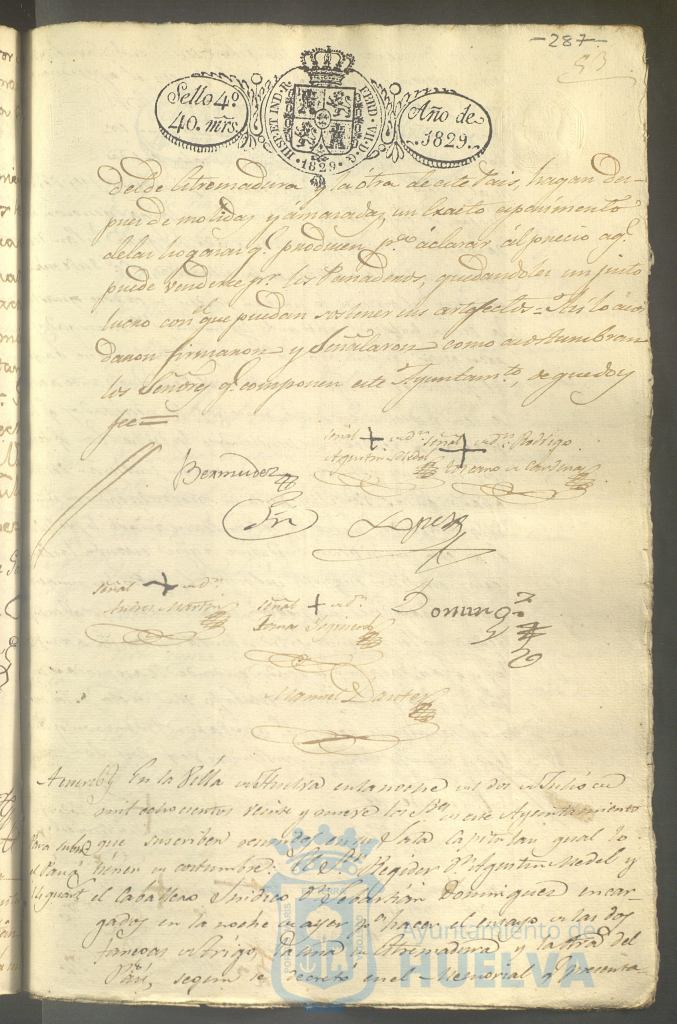 -287-
53
Sello 4º
40. mrs.
HISP. ET IND. R.
FERD. VII D. G.
·1829·
Año de
1829.
de Estremadura y la otra de este Pais, hagan des-
pues de molidas y amasadas, un Exacto esperimento
de las hogazas qe. producen, pa. aclarar al precio a qe.
puede venderse pr. los Panaderos, quedandoles un justo
lucro con el que puedan sostener sus artefactos = Asi lo acor
daron firmaron y Señalaron como acostumbran
los Señores qe. componen este Ayuntamto., de que doy
fee =
Bermudez
señal + de dn.
Agustin Medel
señal + de dn. Rodrigo
de Cardenas
Lopez
señal + de dn.
Andres Martin
señal + de dn.
Doming.z
Manuel
Acuerdo
En la Villa de Huelva en la noche del dos de Julio de
mil ochocientos veinte y nueve los Sres. de este Ayuntamiento
Para subir
que suscriben reunidos en su Sala Capitular qual lo
el Pan á
tienen de costumbre: El Sr. Regidor Dn. Agustin Medel y
14 quart.s
el Caballero Sindico Dn. Sebastián Dominguez encar-
gados en la noche de ayer pa. hacer el ensayo de las dos
fanegas de trigo, la una de Estremadura y la otra del
Pais, segun se decretó en el Memorial qe. presenta-
Ayuntamiento de
HUELVA